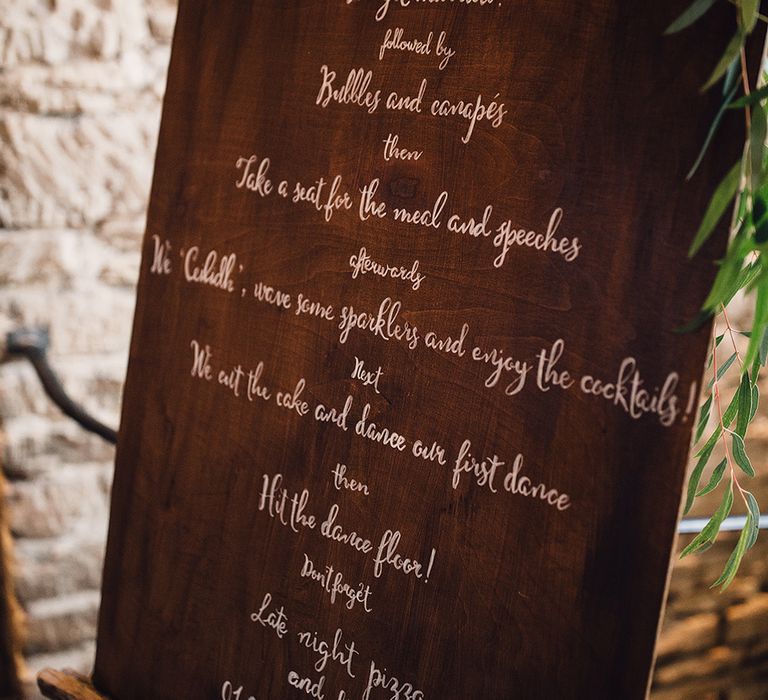 followed by
Bubbles and canapés
then
Take a seat for the meal and speeches
afterwards
We 'Ceiludh', wave some sparklers and enjoy the cocktails!
Next
We cut the cake and dance our first dance
then
Hit the dance floor!
Don't forget
Late night pizza
and